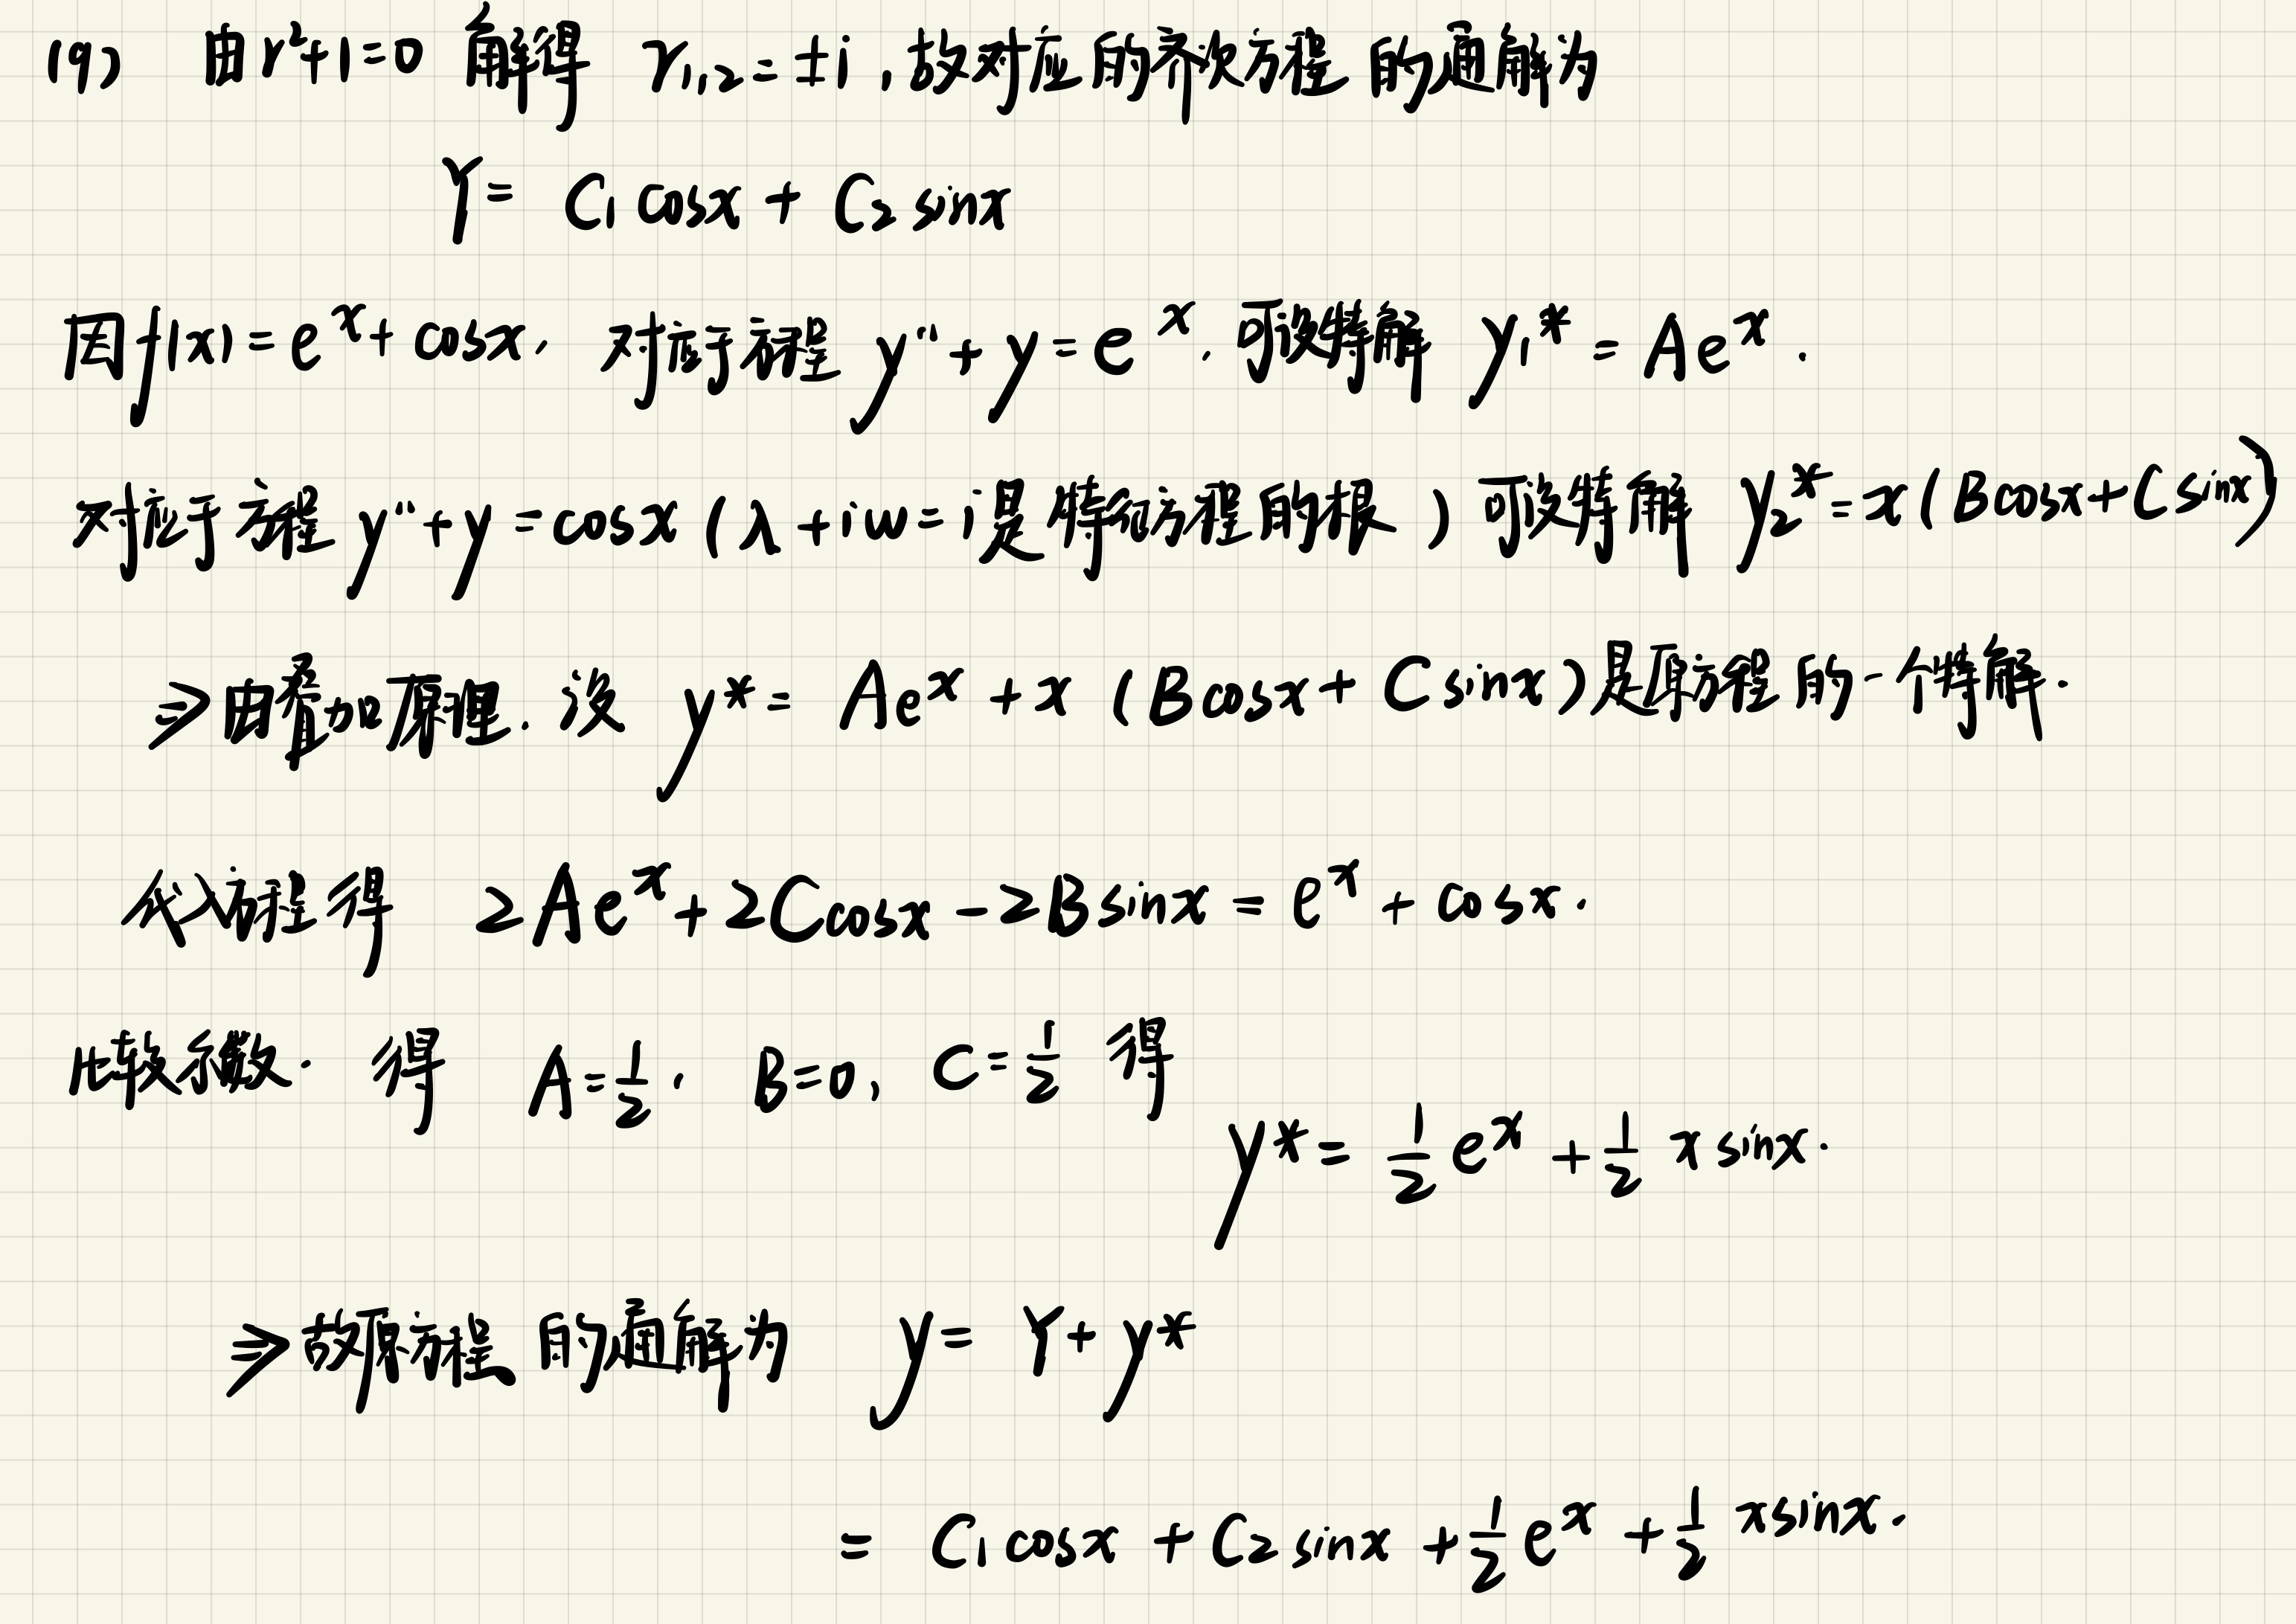 (9) 由r²+1=0 解得 r₁,₂=±i,故对应的齐次方程的通解为
Y= C₁cosx + C₂sinx
因f(x)=eˣ+cosx, 对应于方程 y''+y=eˣ,可设特解 y₁*=Aeˣ.
对应于方程 y''+y=cosx (λ+iw=i是特征方程的根) 可设特解 y₂*=x(Bcosx+Csinx)
⇒由叠加原理,设 y*= Aeˣ+x (Bcosx+Csinx)是原方程的一个特解.
代入方程得 2Aeˣ+2Ccosx-2Bsinx=eˣ+cosx.
比较系数. 得 A=1/2, B=0, C=1/2 得
y*= 1/2 eˣ + 1/2 xsinx.
⇒故原方程的通解为 y= Y+y*
= C₁cosx + C₂sinx + 1/2 eˣ + 1/2 xsinx.